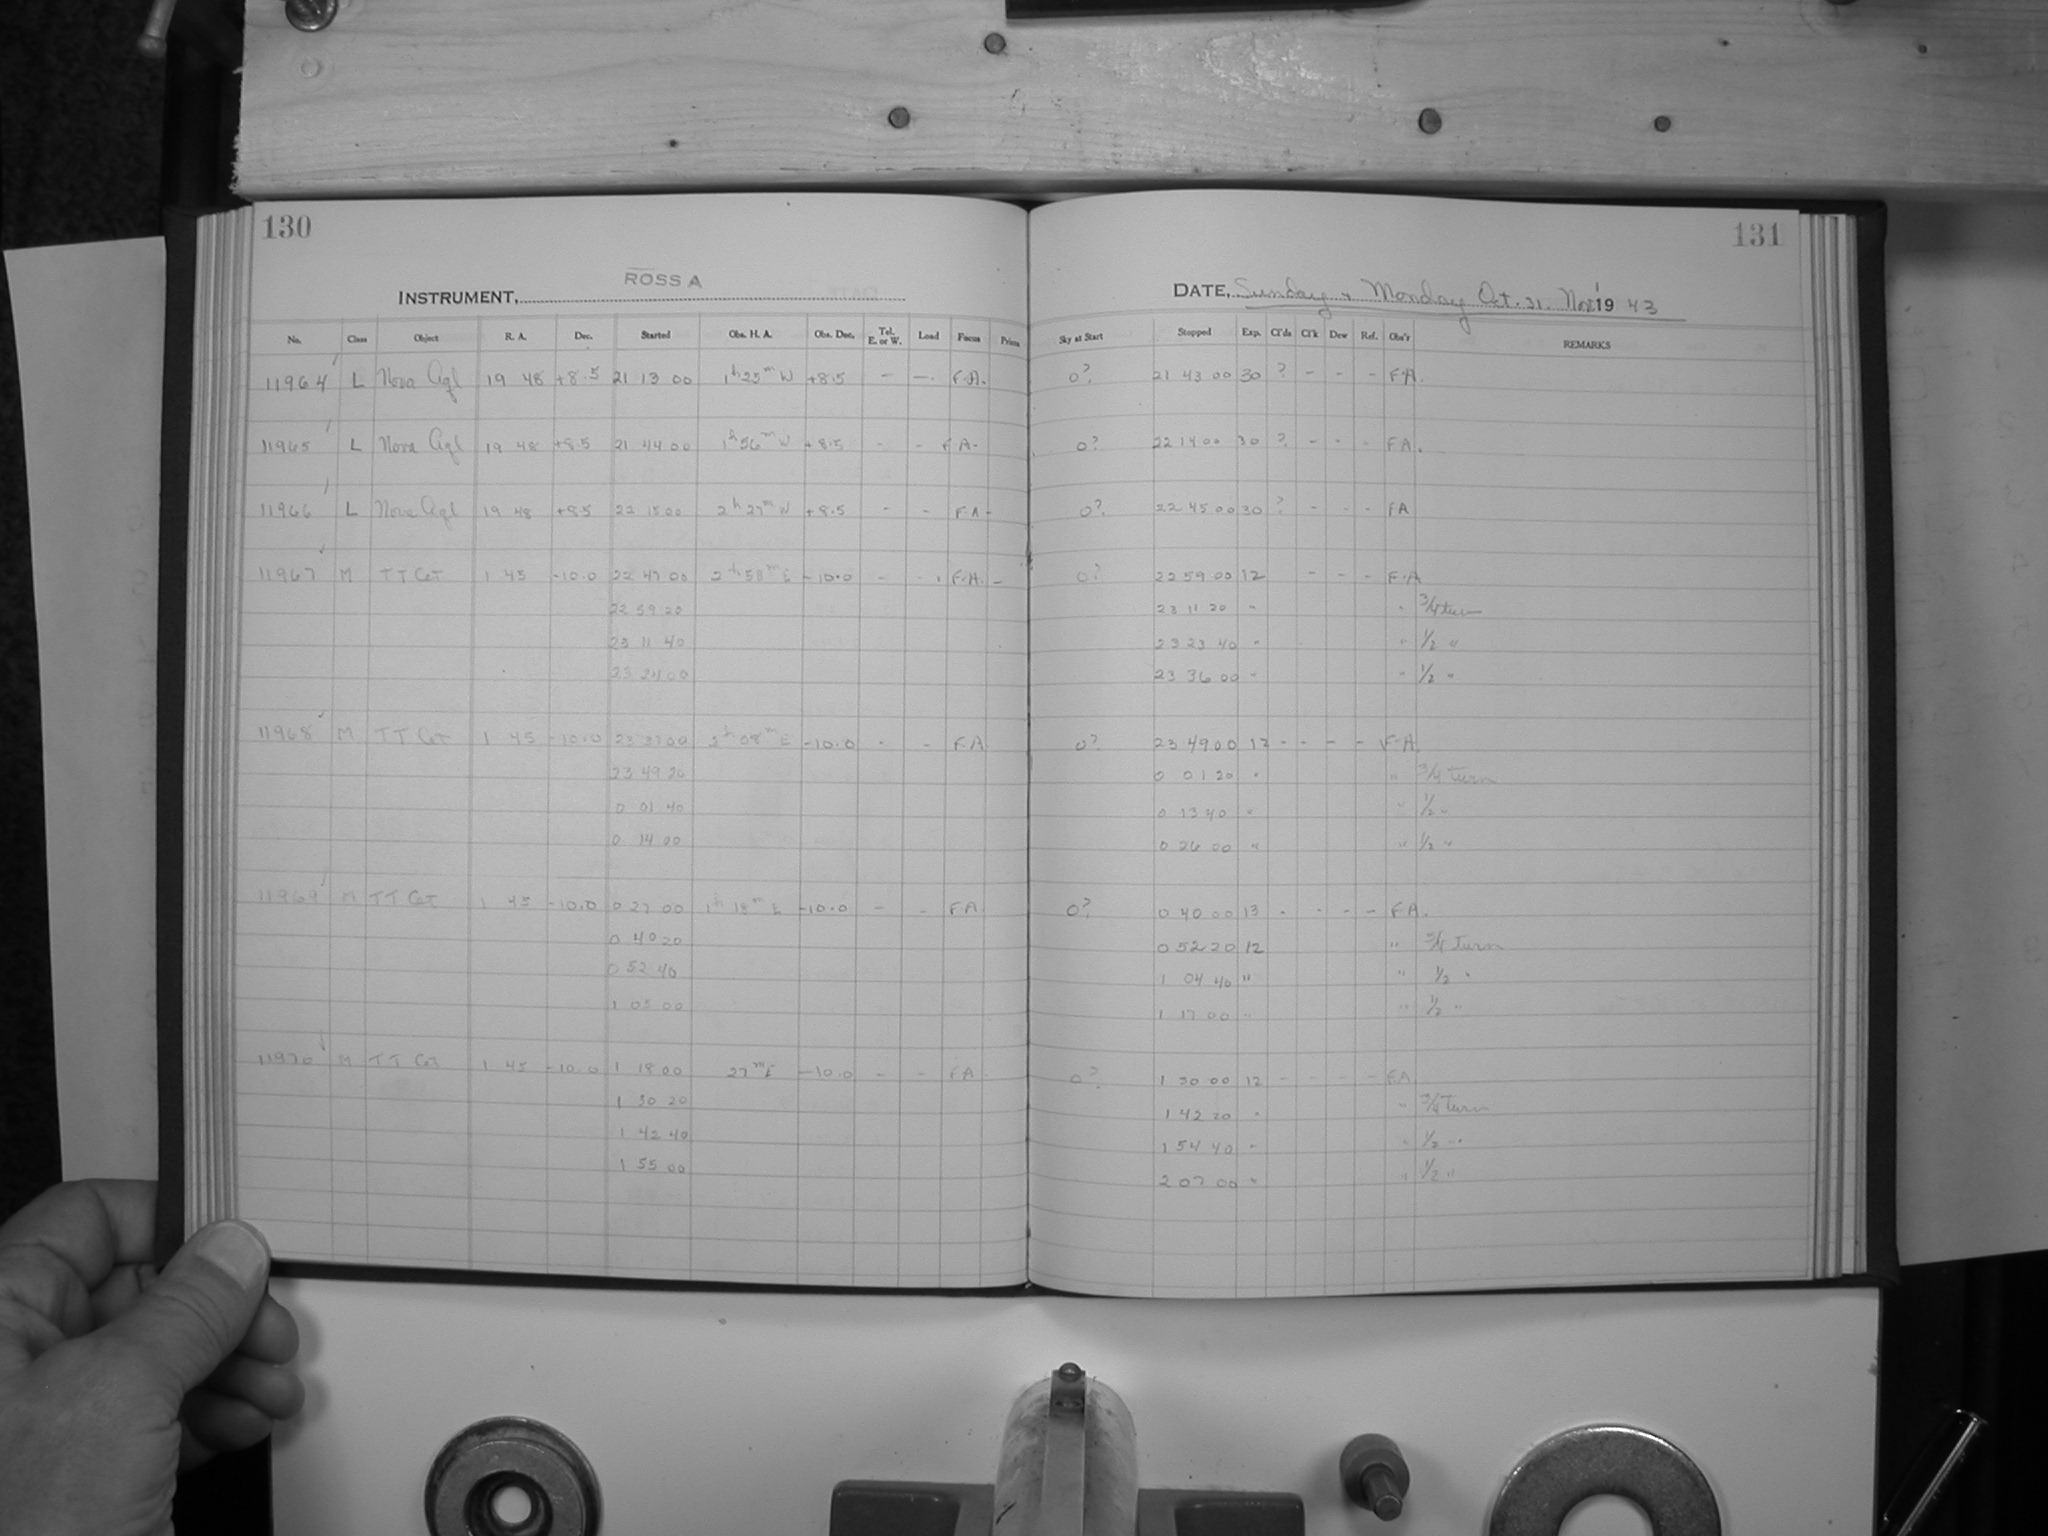 130
131
INSTRUMENT, ROSS A
DATE, Sunday + Monday Oct. 31. Nov 1 1943
No. Class Object R. A. Dec. Started Obs. H. A. Obs. Dec. Tel. E. or W. Load Focus Prism Sky at Start Stopped Exp. Cl'ds Cl'k Dew Ref. Obs'r REMARKS
11964 L Nova Aql 19 48 +8.5 21 13 00 1h 25m W +8.5 - - F.A. 0? 21 43 00 30 ? - - - F.A.
11965 L Nova Aql 19 48 +8.5 21 44 00 1h 56m W +8.5 - - F A - 0? 22 14 00 30 ? - - - F A.
11966 L Nova Aql 19 48 +8.5 22 15 00 2h 27m W +8.5 - - F A - 0? 22 45 00 30 ? - - - F A
11967 M TT Cet 1 45 -10.0 22 47 00 2h 58m E -10.0 - - F.A. - 0? 22 59 00 12 - - - F.A
22 59 20 23 11 20 " " 3/4 turn
23 11 40 23 23 40 " " 1/2 "
23 24 00 23 36 00 " " 1/2 "
11968 M TT Cet 1 45 -10.0 23 37 00 2h 08m E -10.0 - - F.A 0? 23 49 00 12 - - - - F.A.
23 49 20 0 01 20 " " 3/4 turn
0 01 40 0 13 40 " " 1/2 "
0 14 00 0 26 00 " " 1/2 "
11969 M TT Cet 1 45 -10.0 0 27 00 1h 18m E -10.0 - - F.A 0? 0 40 00 13 - - - - F.A.
0 40 20 0 52 20 12 " 3/4 turn
0 52 40 1 04 40 " " 1/2 "
1 05 00 1 17 00 " " 1/2 "
11970 M TT Cet 1 45 -10.0 1 18 00 27m E -10.0 - - F.A 0? 1 30 00 12 - - - - F.A
1 30 20 1 42 20 " " 3/4 turn
1 42 40 1 54 40 " " 1/2 "
1 55 00 2 07 00 " " 1/2 "